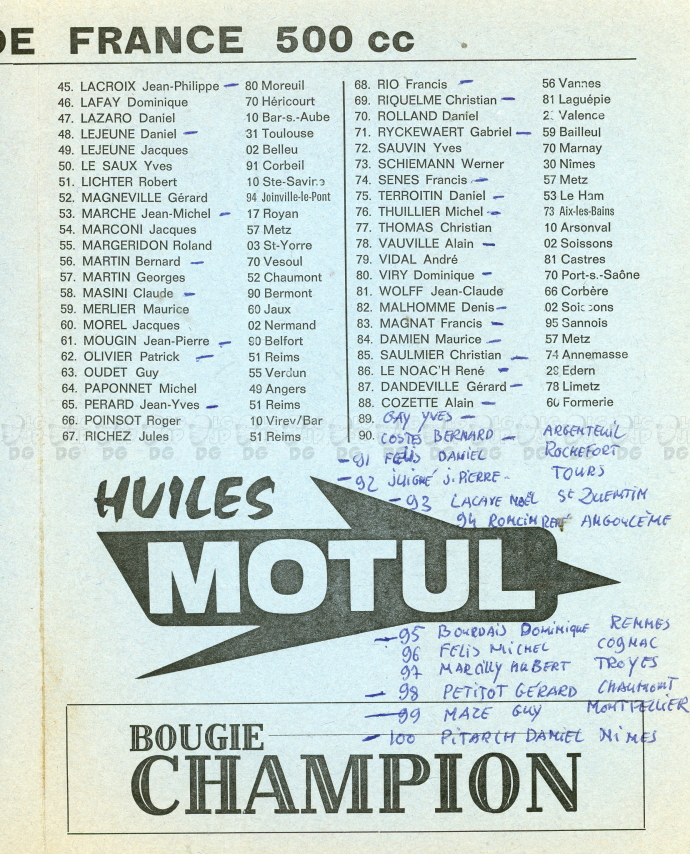 DE FRANCE 500 cc
45. LACROIX Jean-Philippe — 80 Moreuil
46. LAFAY Dominique 70 Héricourt
47. LAZARO Daniel 10 Bar-s.-Aube
48. LEJEUNE Daniel — 31 Toulouse
49. LEJEUNE Jacques 02 Belleu
50. LE SAUX Yves 91 Corbeil
51. LICHTER Robert 10 Ste-Savine
52. MAGNEVILLE Gérard 94 Joinville-le-Pont
53. MARCHE Jean-Michel — 17 Royan
54. MARCONI Jacques 57 Metz
55. MARGERIDON Roland 03 St-Yorre
56. MARTIN Bernard — 70 Vesoul
57. MARTIN Georges 52 Chaumont
58. MASINI Claude — 90 Bermont
59. MERLIER Maurice 60 Jaux
60. MOREL Jacques 02 Nermand
61. MOUGIN Jean-Pierre — 90 Belfort
62. OLIVIER Patrick — 51 Reims
63. OUDET Guy 55 Verdun
64. PAPONNET Michel 49 Angers
65. PERARD Jean-Yves — 51 Reims
66. POINSOT Roger 10 Virey/Bar
67. RICHEZ Jules 51 Reims
68. RIO Francis — 56 Vannes
69. RIQUELME Christian — 81 Laguépie
70. ROLLAND Daniel Valence
71. RYCKEWAERT Gabriel — 59 Bailleul
72. SAUVIN Yves 70 Marnay
73. SCHIEMANN Werner 30 Nîmes
74. SENES Francis — 57 Metz
75. TERROITIN Daniel — 53 Le Ham
76. THUILLIER Michel — 73 Aix-les-Bains
77. THOMAS Christian 10 Arsonval
78. VAUVILLE Alain — 02 Soissons
79. VIDAL André 81 Castres
80. VIRY Dominique — 70 Port-s.-Saône
81. WOLFF Jean-Claude 66 Corbère
82. MALHOMME Denis — 02 Soissons
83. MAGNAT Francis — 95 Sannois
84. DAMIEN Maurice — 57 Metz
85. SAULMIER Christian — 74 Annemasse
86. LE NOAC'H René — 29 Edern
87. DANDEVILLE Gérard — 78 Limetz
88. COZETTE Alain — 60 Formerie
89. GAY YVES —
90. COSTE BERNARD — ARGENTEUIL
— 91 FELIS DANIEL ROCHEFORT
— 92 JUIGNÉ J. PIERRE - TOURS
— 93 LACAVE NOËL St QUENTIN
94 RENÉ ANGOULÊME
HUILES
MOTUL
— 95 BOURDAIS DOMINIQUE RENNES
96 FELIS MICHEL COGNAC
97 MARCILLY HUBERT TROYES
— 98 PETITOT GÉRARD CHAUMONT
— 99 MAZE GUY MONTPELLIER
— 100 PITARCH DANIEL NIMES
BOUGIE
CHAMPION